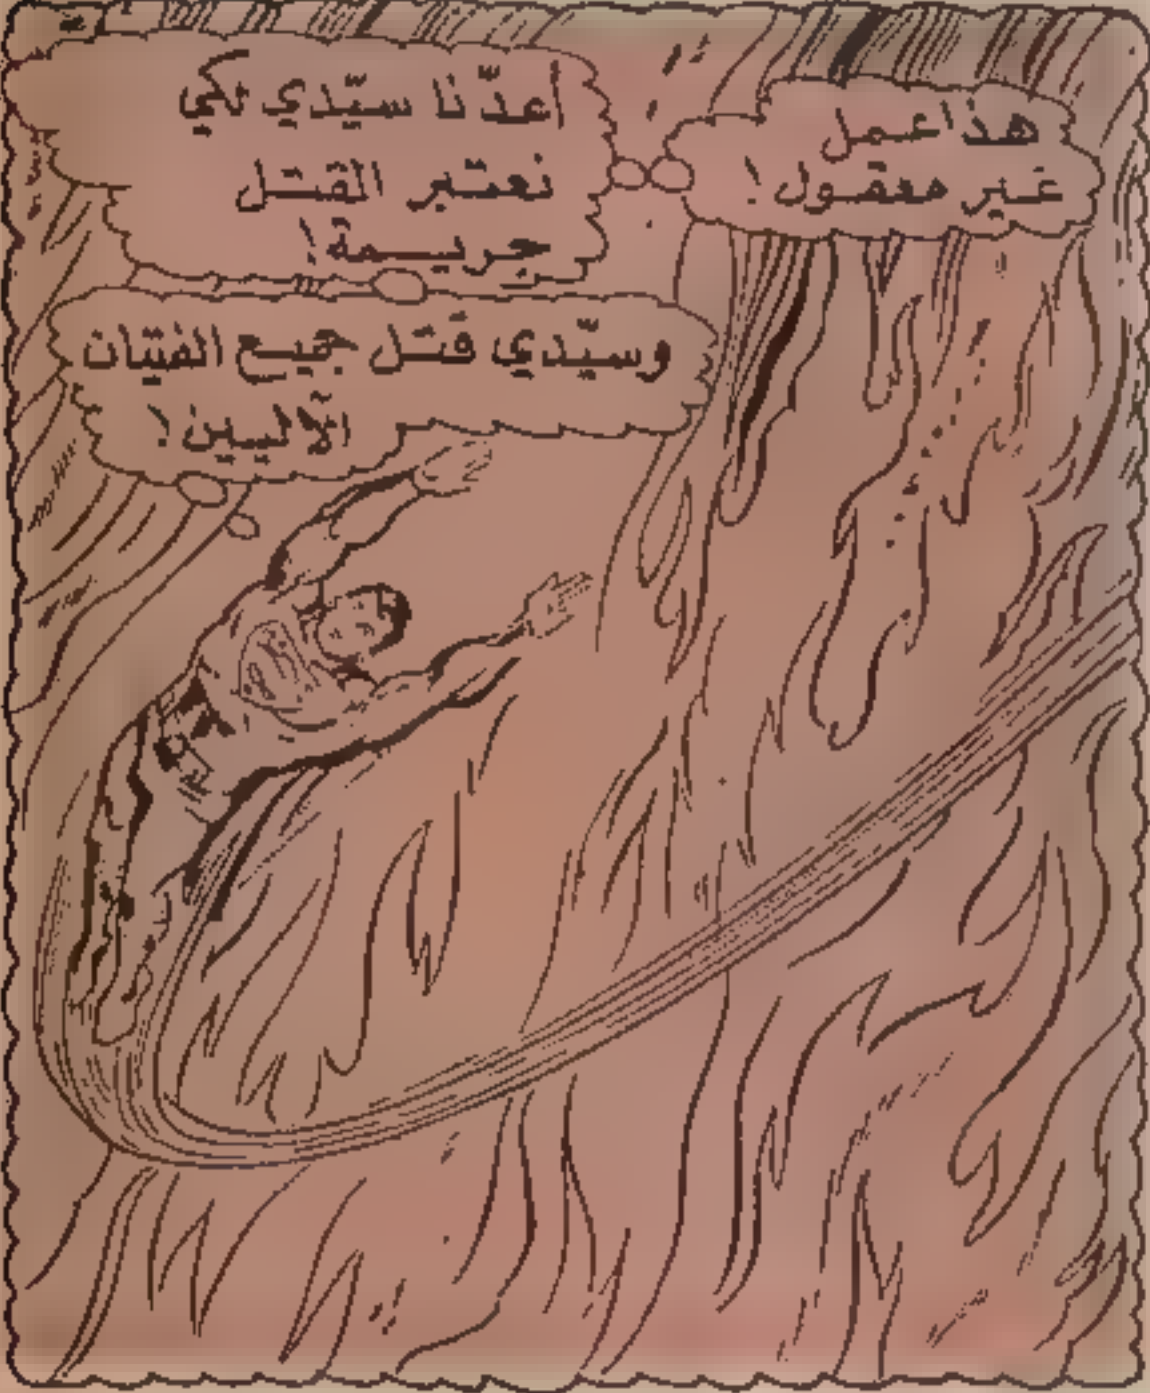 هذا عمل
غير معقول !
أعدّنا سيّدي لكي
نعتبر القتل
جريمة !
وسيّدي قتل جميع الفتيات
الآليين !